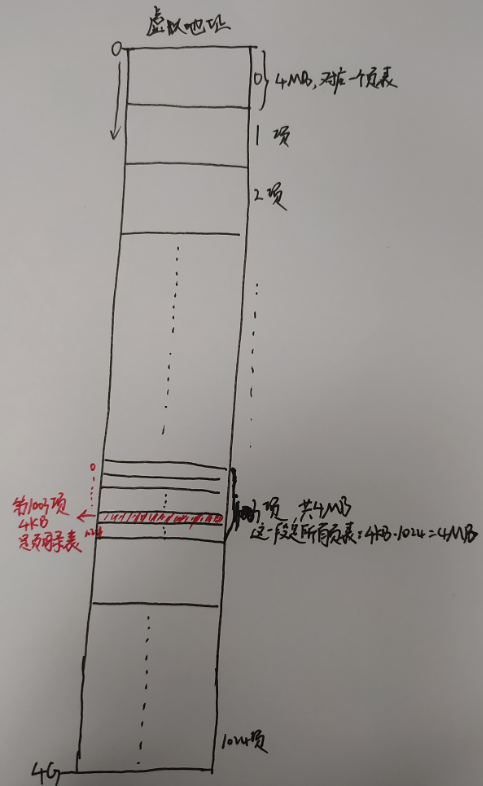 虚拟地址
0
0 } 4MB，对应一个页表
1 项
2项
0
第1003项
4KB
是页目录表
1024
1003项 共4MB
这一段是所有页表：4KB·1024=4MB
1024项
4G